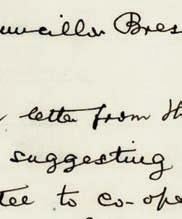 ouncillor Bres
letter from th
suggesting
tee to co-ope